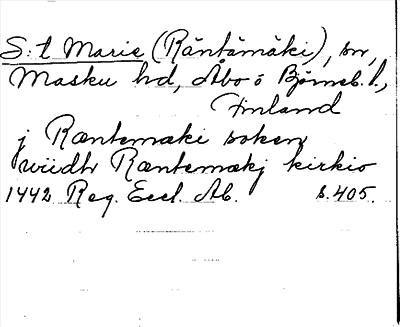 S:t Marie (Räntämäki), sn,
Masku hd, Åbo o Björneb. l.,
Finland
j Räntemäki soken
wiidh Räntemäkj kirkio
1442 Reg. Eccl. Ab. s. 405.